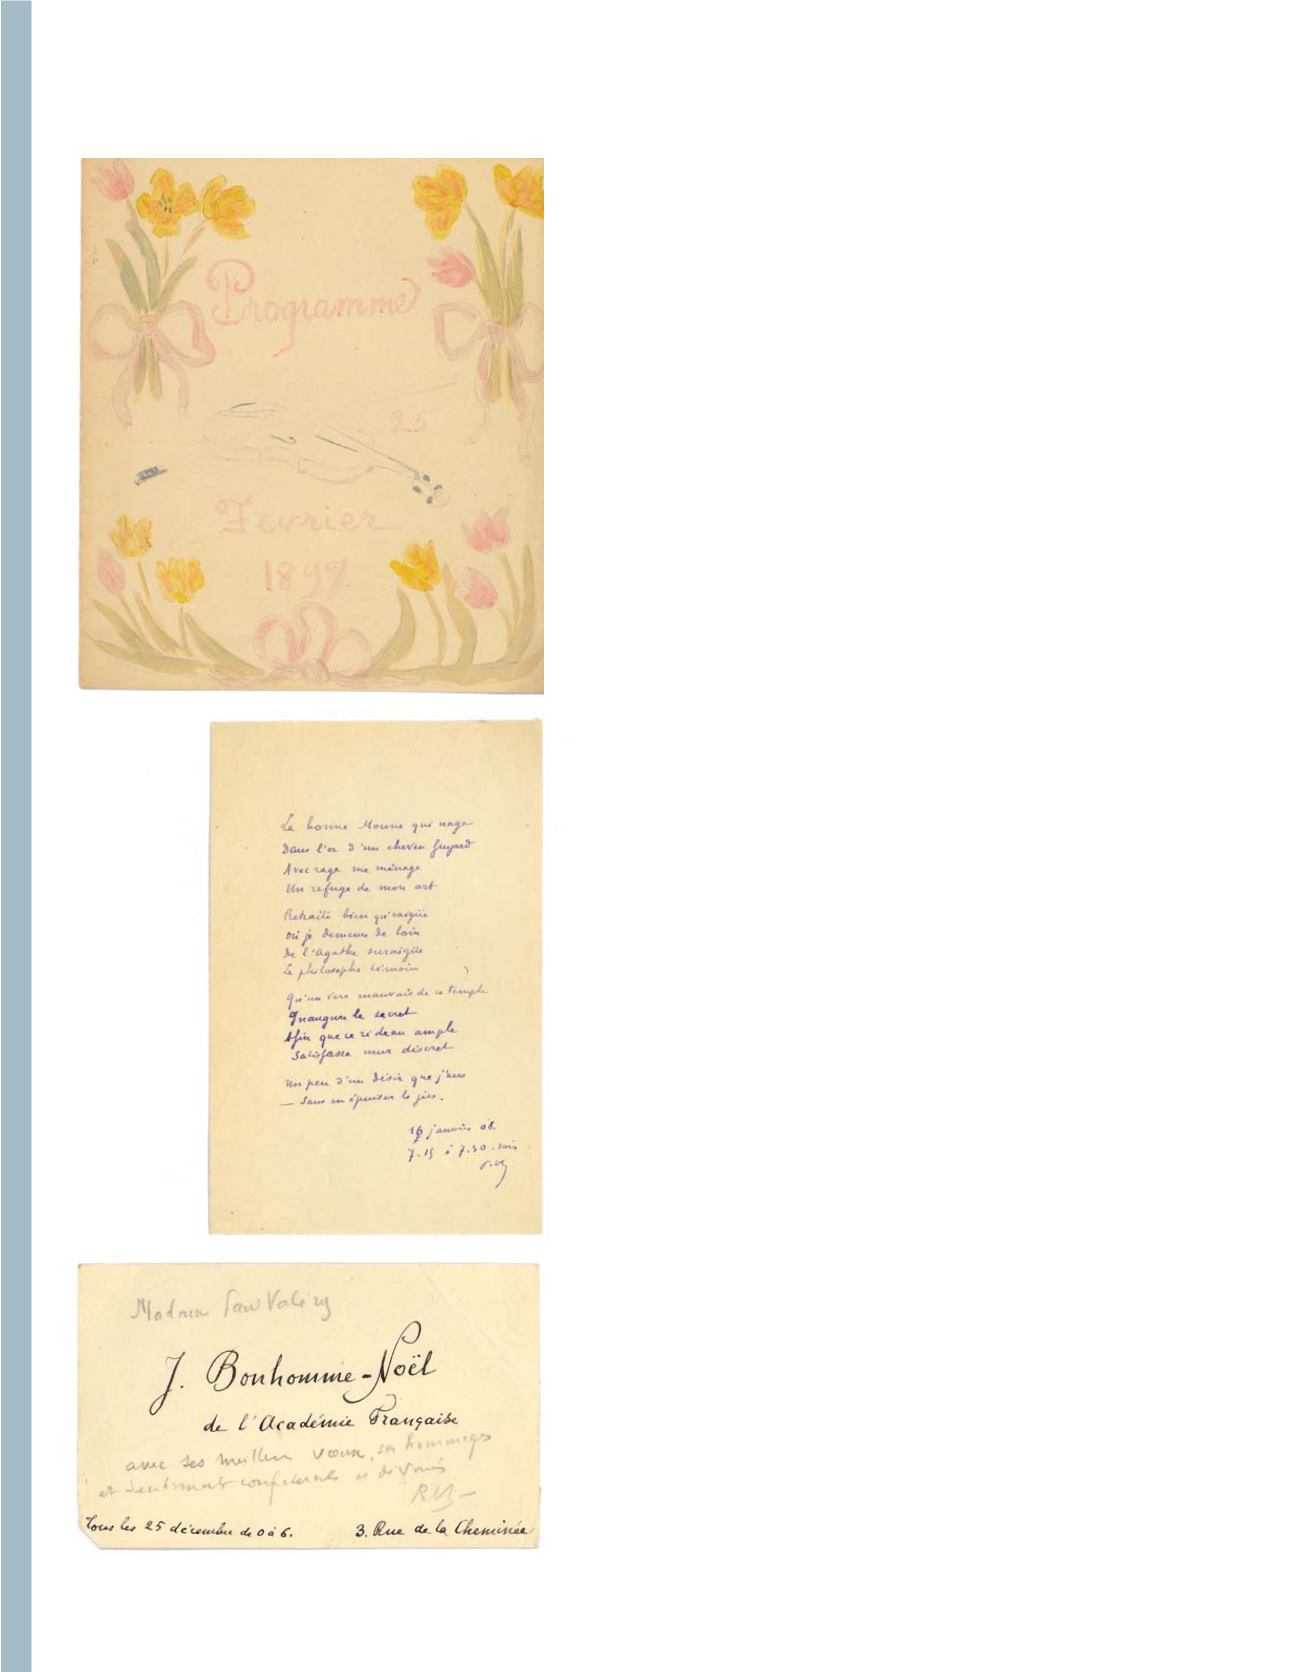 Programme
25
Fevrier
1897
La bonne Moune qui nage
Dans l'or d'un cheveu fuyard
Avec rage me ménage
Un refuge de mon art
Retraite bien qu'exigüe
où je demeure de loin
De l'Agathe suraigüe
Le philosophe témoin
Qu'un vers mauvais de ce temple
Inaugure le secret
Afin que ce rideau ample
Satisfasse mur discret
Un peu d'un désir que j'eus
— Sans en épuiser le jus.
16 janvier 08.
7.15 à 7.30 soir
P.V.
Madame Paul Valéry
J. Bonhomme-Noël
de l'Académie Française
avec ses meilleurs vœux, ses hommages
et sentiments et dévoués
Tous les 25 décembre de 0 à 6.
3. Rue de la Cheminée